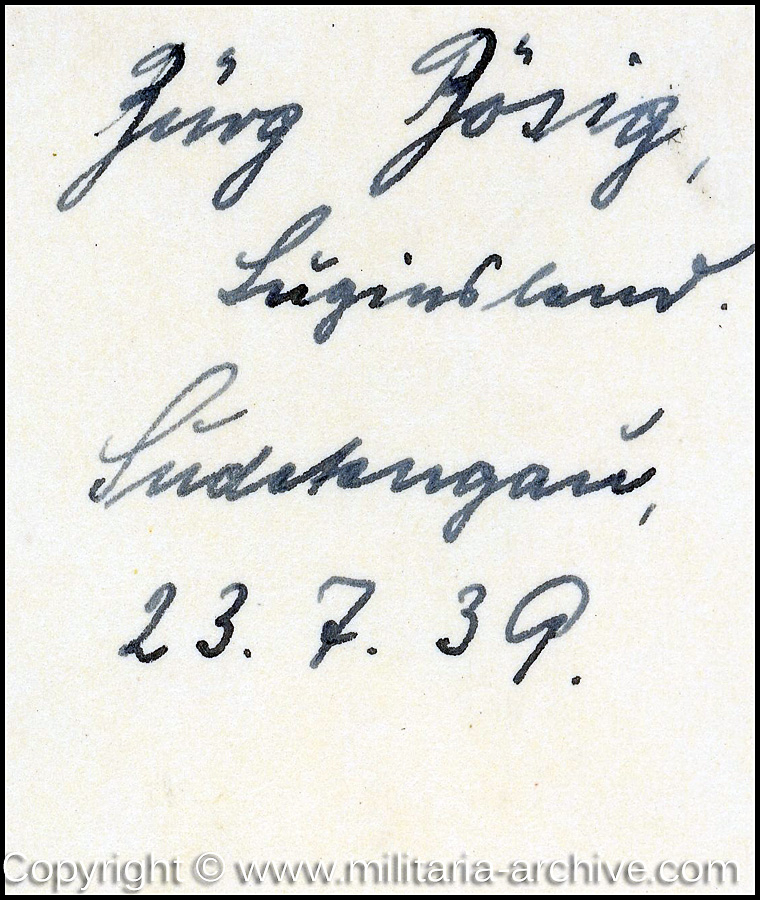 Burg Bösig,
Luginsland.
Sudetengau,
23. 7. 39.
Copyright © www.militaria-archive.com